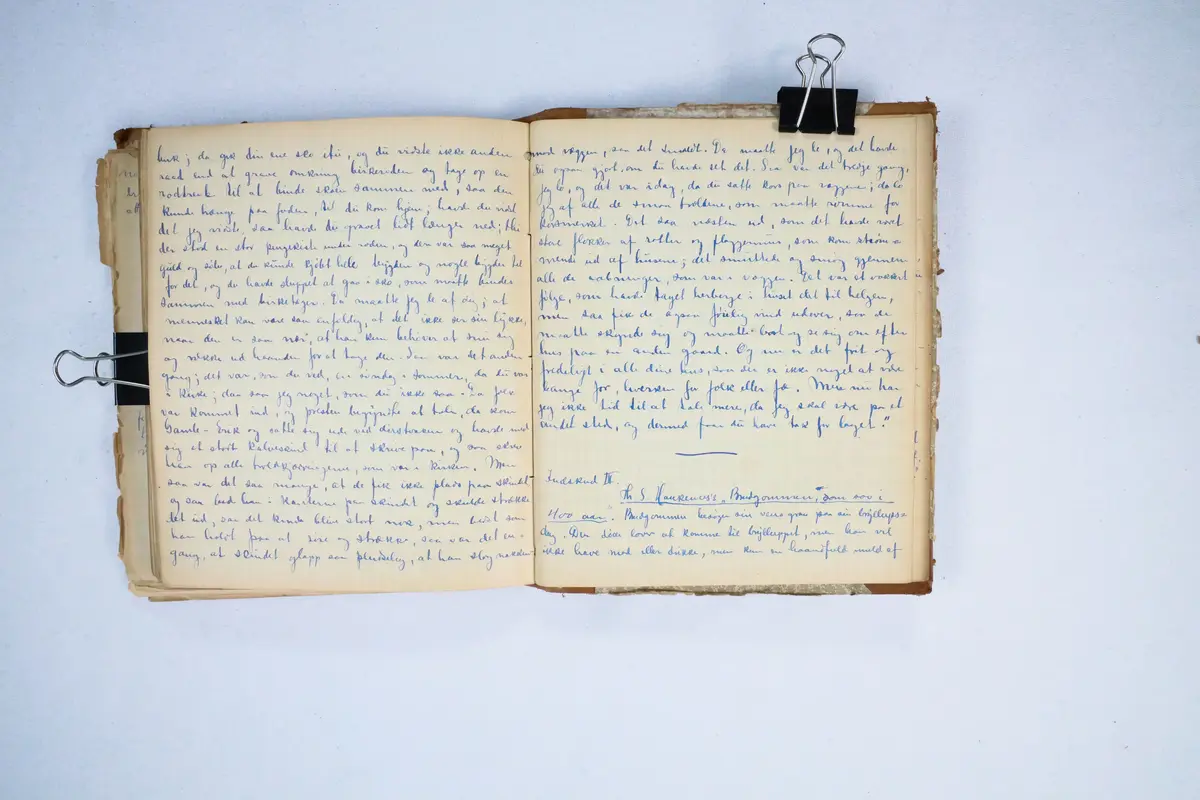 bruk; da gik din ene sko itu, og du vidste ikke anden
raad end at grave omkring birkeroden og tage op en
rodtrevl til at binde skoen sammen med, saa den
kunde hænge paa foden, til du kom hjem; havde du vidst
det jeg vidste, saa havde du gravet lidt længer ned; thi
der stod en stor pengekiste under roden, og der var saa meget
guld og sølv, at du kunde kjøbt hele bygden og nogle bygder til
for det, og du havde sluppet at gaa i sko, som maatte bindes
sammen med birketæger. Da maatte jeg le af deg; at
mennesket kan være saa enfoldig, at det ikke ser sin lykke,
naar den er saa nær, at han kun behøver at snu sig
og række ud haanden for at tage den. Saa var det anden
gang; det var, som du ved, en søndag i sommer, da du var
i kirke; da saa jeg noget, som du ikke saa. Da folk
var kommet ind, og presten begyndte at tale, da kom
Gamle-Erik og satte sig ude ved dørstokken og havde med
sig et stort kalveskind til at skrive paa, og saa skrev
han op alle troldkjærringerne, som var i kirken. Men
saa var det saa mange, at de fik ikke plads paa skindet
og saa bed han i kanterne paa skindet og skulde strække
det ud, saa det kunde blive stort nok, men bedst som
han holdt paa at rive og strække, saa var det en-
gang, at skindet glapp saa pludselig, at han slog nakken
mod væggen, saa det smaldt. Da maatte jeg le, og det havde
du ogsaa gjort, om du havde set det. Saa var det tredje gang,
jeg lo, og det var idag, da du satte kors paa væggene; da lo
jeg af alle de smaa troldene, som maatte rømme for
korsmerket. Det saa næsten ud, som det havde været
store flokker af rotter og flaggermus, som kom strøm-
mende ud af husene; det smuttede og smög gjennem
alle de aabninger, som var i væggen. Det var et vakkert
følge, som havde taget herberge i huset det til helgen,
men saa fik de ogsaa føielig med udover, saa de
maatte skynde sig og maatte bort og se sig om efter
hus paa en anden gaard. Og nu er det frit og
fredeligt i alle dine hus, saa der er ikke noget at være
bange for, hverken for folk eller fæ. Men nu har
jeg ikke tid til at tale mere, da jeg skal være paa et
andet sted, og dermed faar du have tak for laget."
Indskud IV.
Th. S. Haukenæs's "Brudgommen," som sov i
400 aar. Brudgommen besøger sin vens grav paa sin bryllups-
dag. Den døde lover at komme til brylluppet, men han vil
ikke have mad eller drikke, men kun en haandfuld muld af